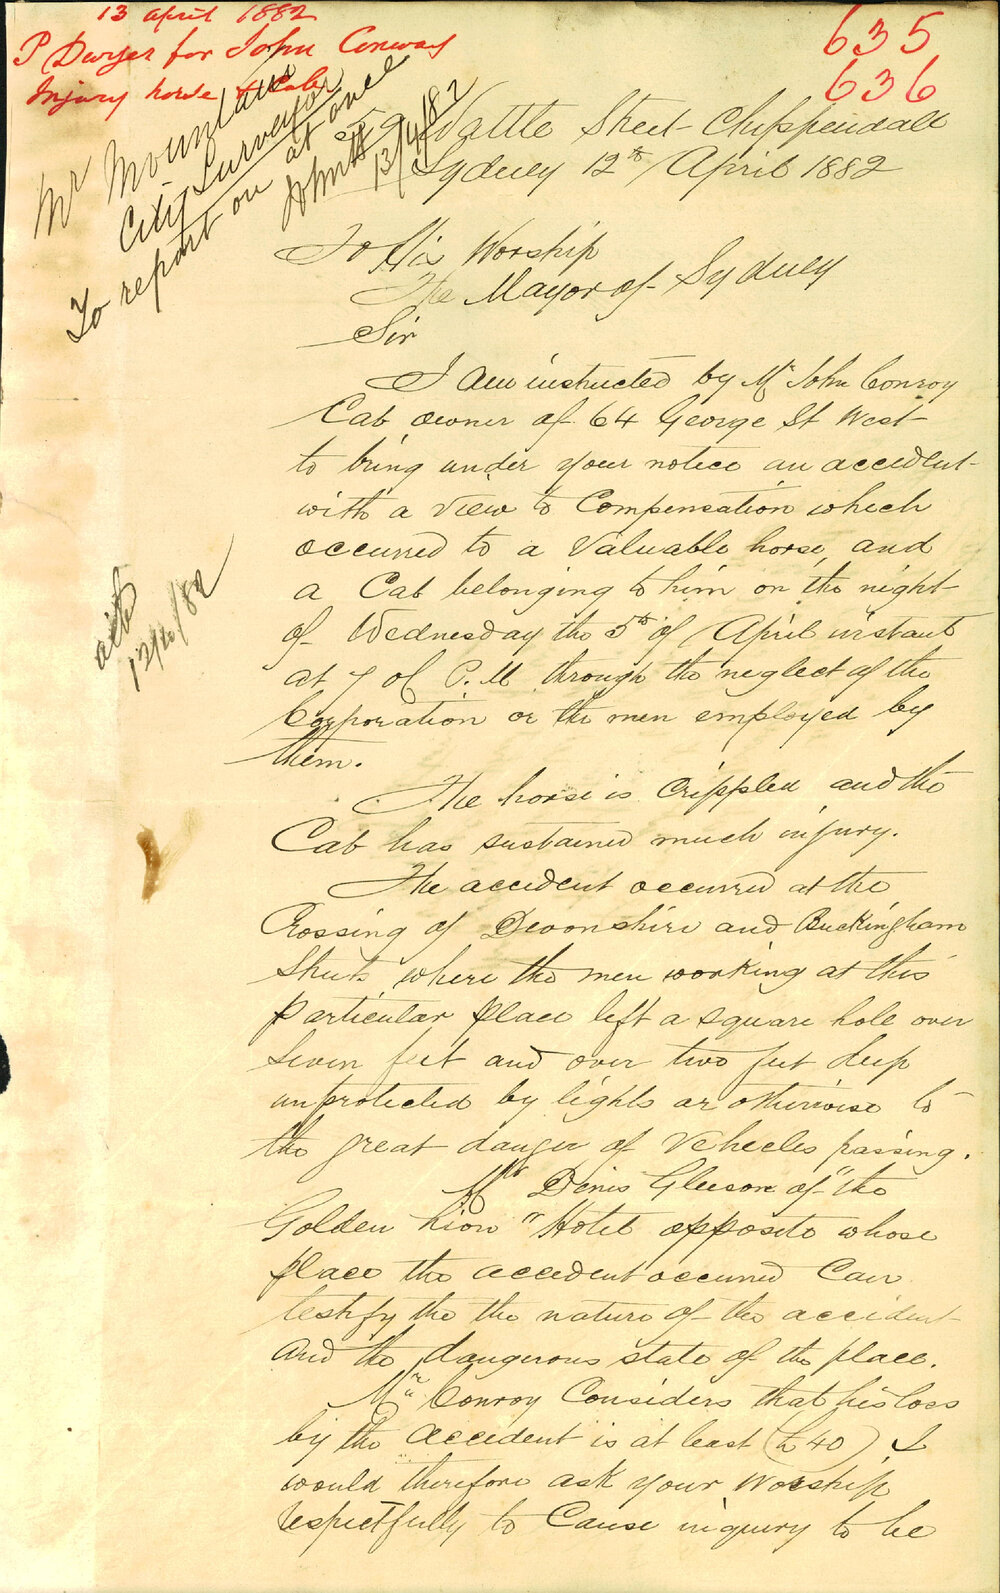 13 april 1882
P Dwyer for John Conway
Injury horse & Cab
635
636
Mr Mountain
City Surveyor
To report on at once
13/4/82
59 Wattle Street Chippendall
Sydney 12th April 1882
To His Worship
The Mayor of Sydney
Sir
I am instructed by Mr John Conroy
Cab owner of 64 George St West
to bring under your notice an accedent
with a view to Compensation which
occurred to a Valuable horse, and
a Cab belonging to him on the night
of Wednesday the 5th of April instant
at 7 ol P.M. through the neglect of the
Corporation or the men employed by
them.
The horse is Crippled and the
Cab has sustained much injury.
The accedent occurred at the
Crossing of Devonshire and Buckingham
Streets where the men working at this
particular place left a square hole over
seven feet and over two feet deep
unprotected by lights or otherwise to
the great danger of Vehecles passing.
Mr Denis Gleeson of "the
Golden Lion" Hotel opposite whose
place the accedent occurred Can
testify the the nature of the accident
and the dangerous state of the place.
Mr Conroy Considers that his loss
by the accedent is at least (£40) I
would therefore ask your Worship
respectfully to Cause inquiry to be
12/4/82